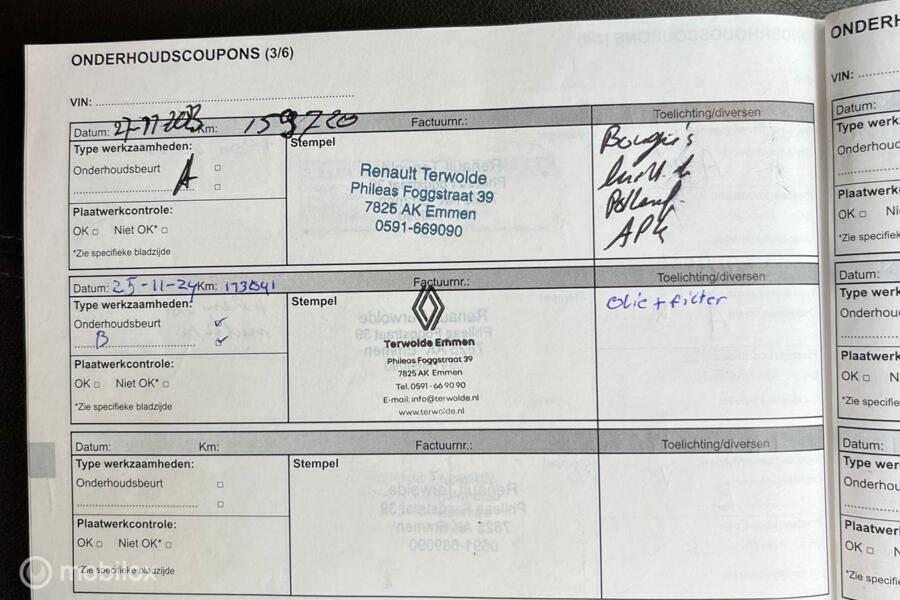 ONDERHOUDSCOUPONS (3/6)
VIN:
Datum: 27-11-2023 Km: 159720 Factuurnr.: Toelichting/diversen
Type werkzaamheden: Stempel
Onderhoudsbeurt A
Plaatwerkcontrole:
OK Niet OK*
*Zie specifieke bladzijde
Renault Terwolde
Phileas Foggstraat 39
7825 AK Emmen
0591-669090
Bougie's
APK
Datum: 25-11-24 Km: 173041 Factuurnr.: Toelichting/diversen
Type werkzaamheden: Stempel
Onderhoudsbeurt
B
Plaatwerkcontrole:
OK Niet OK*
*Zie specifieke bladzijde
Terwolde Emmen
Phileas Foggstraat 39
7825 AK Emmen
Tel. 0591 - 66 90 90
E-mail: info@terwolde.nl
www.terwolde.nl
olie + filter
Datum: Km: Factuurnr.: Toelichting/diversen
Type werkzaamheden: Stempel
Onderhoudsbeurt
Plaatwerkcontrole:
OK Niet OK*
*Zie specifieke bladzijde
ONDERH
VIN:
Datum:
Type werkz
Onderhou
Plaatwerk
OK Ni
*Zie specifie
Datum:
Type werk
Onderhou
Plaatwerk
OK N
*Zie specifie
Datum:
Type wer
Onderhou
Plaatwer
OK N
*Zie specifi
mobilox